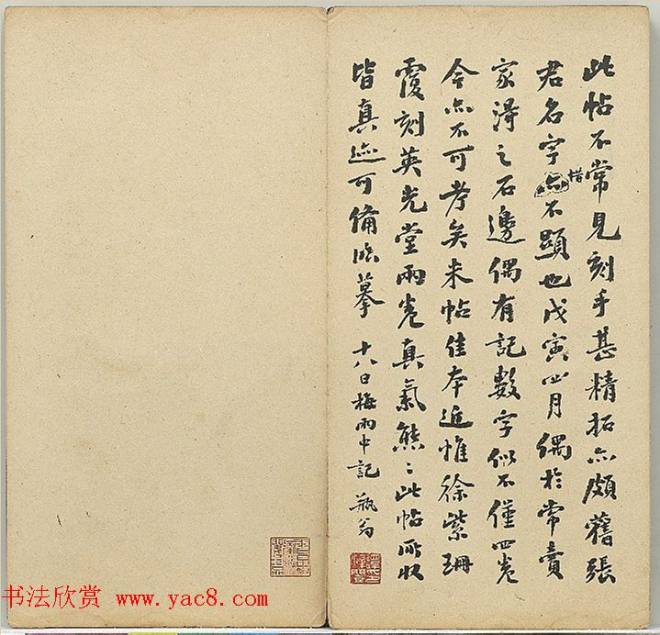 此帖不常見刻手甚精拓亦頗舊張
君名字亦惜不顯也戊寅四月偶於常賣
家得之石邊偶有記數字似不僅四卷
今亦不可考矣米帖佳本近惟徐紫珊
覆刻英光堂兩卷真氣熊〻此帖所收
皆真迹可備臨摹 十八日梅雨中記 瓶翁
书法欣赏 www.yac8.com